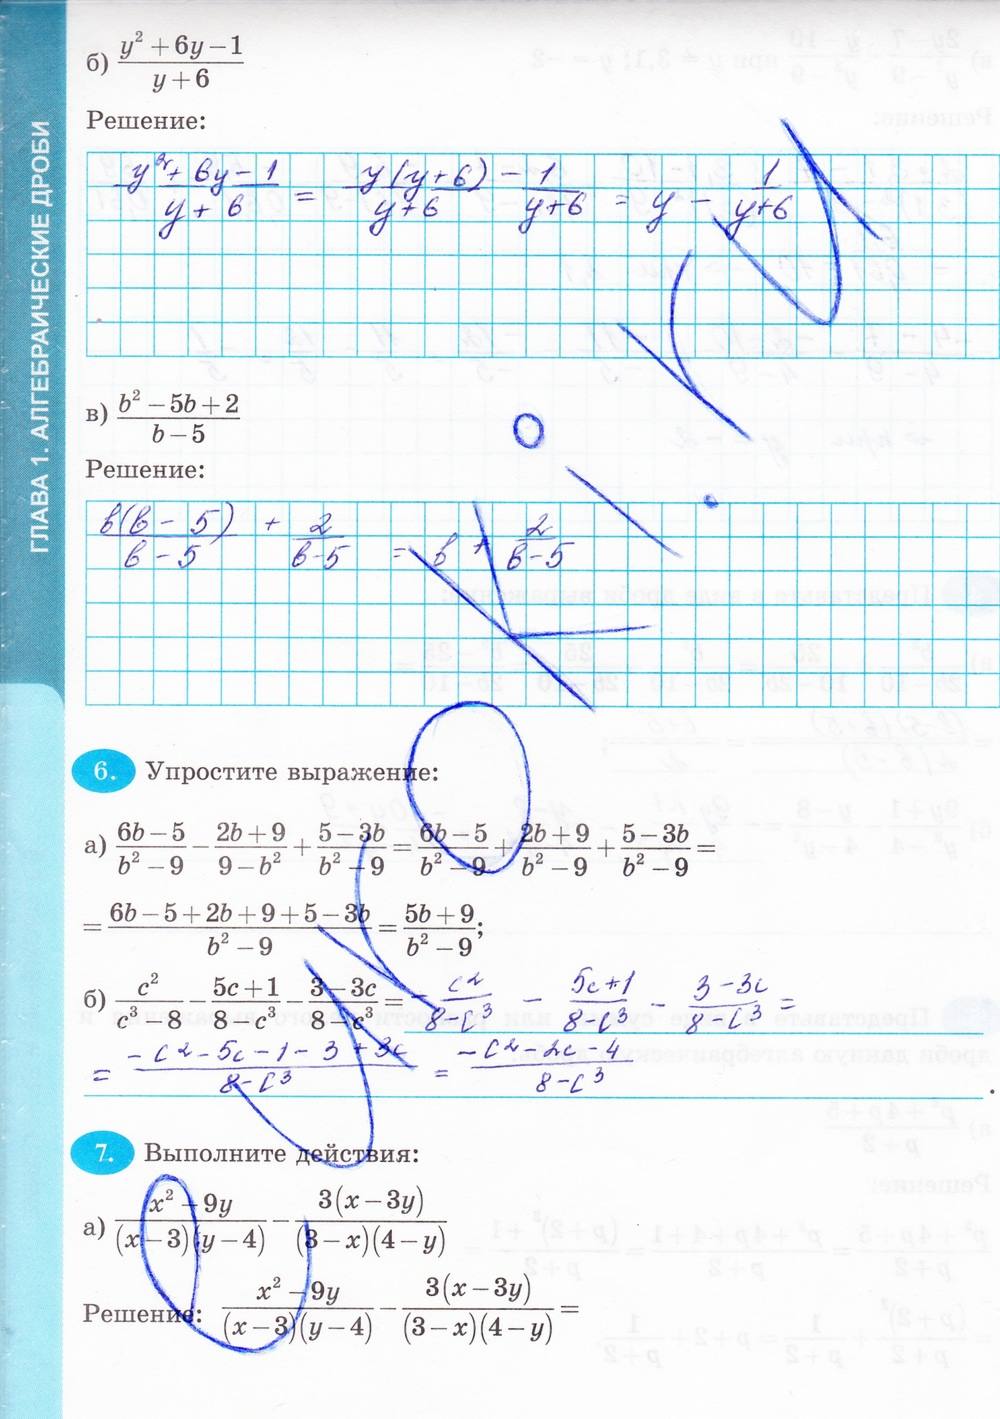 ГЛАВА 1. АЛГЕБРАИЧЕСКИЕ ДРОБИ
б) (y² + 6y − 1)/(y + 6)
Решение:
(y² + 6y − 1)/(y + 6) = y(y + 6)/(y + 6) − 1/(y + 6) = y − 1/(y + 6)
в) (b² − 5b + 2)/(b − 5)
Решение:
в(в − 5)/(в − 5) + 2/(в − 5) = в + 2/(в − 5)
6. Упростите выражение:
а) (6b − 5)/(b² − 9) − (2b + 9)/(9 − b²) + (5 − 3b)/(b² − 9) = (6b − 5)/(b² − 9) + (2b + 9)/(b² − 9) + (5 − 3b)/(b² − 9) =
= (6b − 5 + 2b + 9 + 5 − 3b)/(b² − 9) = (5b + 9)/(b² − 9);
б) c²/(c³ − 8) − (5c + 1)/(8 − c³) − (3 − 3c)/(8 − c³) = − c²/(8 − c³) − (5c + 1)/(8 − c³) − (3 − 3c)/(8 − c³) =
= (−c² − 5c − 1 − 3 + 3c)/(8 − c³) = (−c² − 2c − 4)/(8 − c³).
7. Выполните действия:
а) (x² − 9y)/((x − 3)(y − 4)) − 3(x − 3y)/((3 − x)(4 − y))
Решение: (x² − 9y)/((x − 3)(y − 4)) − 3(x − 3y)/((3 − x)(4 − y)) =